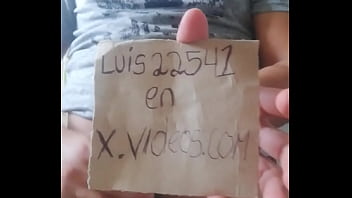 Luis22541
en
X.VIDEOS.COM